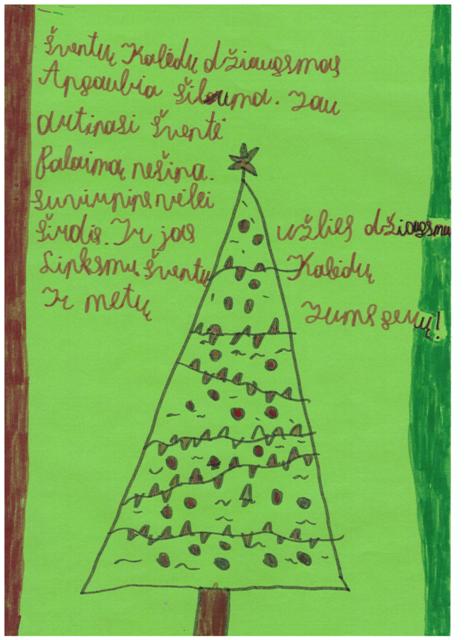 Šventų Kalėdų džiaugsmas
Apgaubia šiluma. Jau
artinasi šventė
Palaimą nešina.
suvirpins vėlei
širdis. Ir jas užlies džiaugsmu
Linksmų šventų Kalėdų
Ir metų Jums gerų!